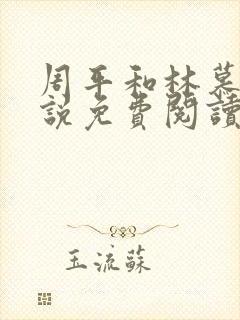 周平和林慕
說免費閱讀
玉流蘇